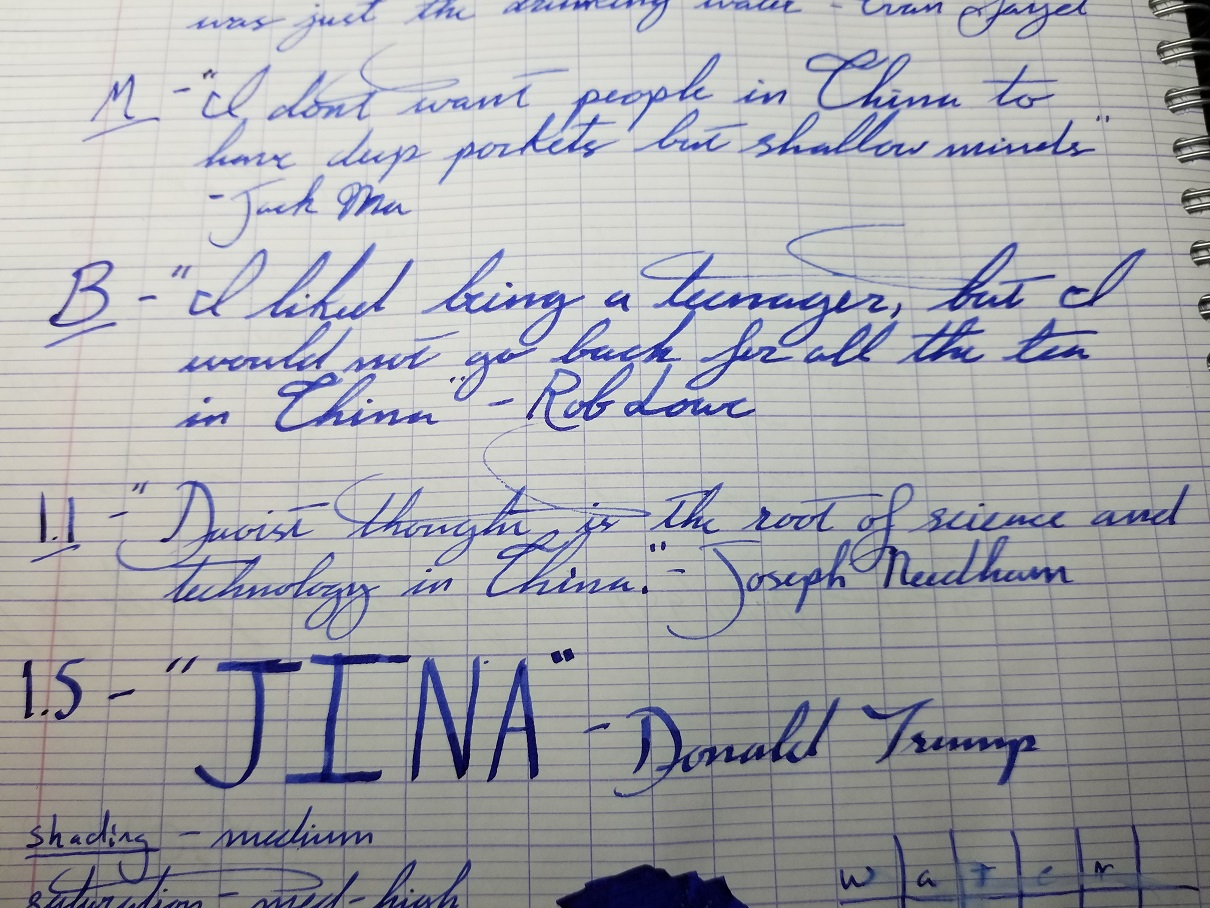 was just the drinking water - Evan
M - "I dont want people in China to
have deep pockets but shallow minds"
- Jack Ma
B - "I liked being a teenager, but I
would not go back for all the tea
in China" - Rob Lowe
1.1 - "Daoist thought is the root of science and
technology in China." - Joseph Needham
1.5 - "JINA" - Donald Trump
shading - medium
saturation - med-high
W a t e r